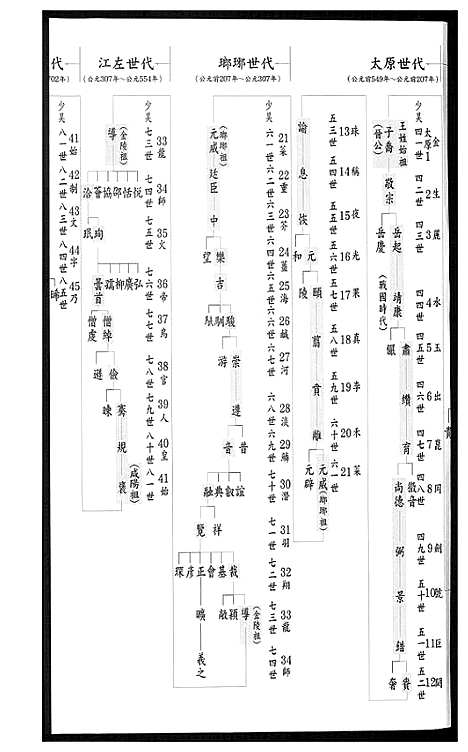 太原世代
(公元前549年~公元前207年)
太原1金
2生
3麗
4水
5玉
6出
7崑
8岡
9劍
10號
11巨
12闕
少昊
四一世
四二世
四三世
四四世
四五世
四六世
四七世
四八世
四九世
五十世
五一世
五二世
王姓始祖
子喬
(晉公)
敬宗
岳起
岳慶
(戰國時代)
靖康
育
尚德
弼
景
錯
貴
奢
13珠
14稱
15夜
16光
17果
18真
19李
20柰
21菜
五三世
五四世
五五世
五六世
五七世
五八世
五九世
六十世
六一世
論
息
恢
元
和
頤
陵
翦
賁
離
元威(瑯琊祖)
元辟
瑯琊世代
(公元前207年~公元307年)
21菜
22重
23芥
24薑
25海
26鹹
27河
28淡
29鱗
30潛
31羽
32翔
33龍
34師
少昊
六一世
六二世
六三世
六四世
六五世
六六世
六七世
六八世
六九世
七十世
七一世
七二世
七三世
七四世
(瑯琊祖)
元威
廷臣
中
樂
望
吉
駿
馴
崇
游
遵
音
誼
叡
典
融
祥
覽
裁
基
會
正
彥
琛
導(金陵祖)
穎
敞
曠
羲之
江左世代
(公元307年~公元554年)
33龍
34師
35火
36帝
37鳥
38官
39人
40皇
41始
少昊
七三世
七四世
七五世
七六世
七七世
七八世
七九世
八十世
八一世
(金陵祖)
導
悅
恬
邵
協
薈
洽
珣
珉
弘
廣
柳
孺
曇首
僧綽
僧虔
儉
遜
騫
暕
規
褒
(咸陽祖)
代
702年)
41始
42制
43文
44字
45乃
少昊
八一世
八二世
八三世
八四世
八五世